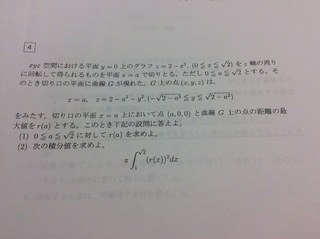 4
xyz 空間における平面 y = 0 上のグラフ z = 2 − x², (0 ≦ x ≦ √2) を z 軸の周り
に回転して得られるものを平面 x = a で切りとる。ただし 0 ≦ a ≦ √2 とする。そ
のとき切り口の平面に曲線 G が現れた。G 上の点 (x, y, z) は、
x = a, z = 2 − a² − y², (−√(2 − a²) ≦ y ≦ √(2 − a²))
をみたす。切り口の平面 x = a 上において点 (a, 0, 0) と曲線 G 上の点の距離の最
大値を r(a) とする。このとき下記の設問に答えよ。
(1) 0 ≦ a ≦ √2 に対して r(a) を求めよ。
(2) 次の積分値を求めよ。
π ∫₁^√2 (r(x))² dx